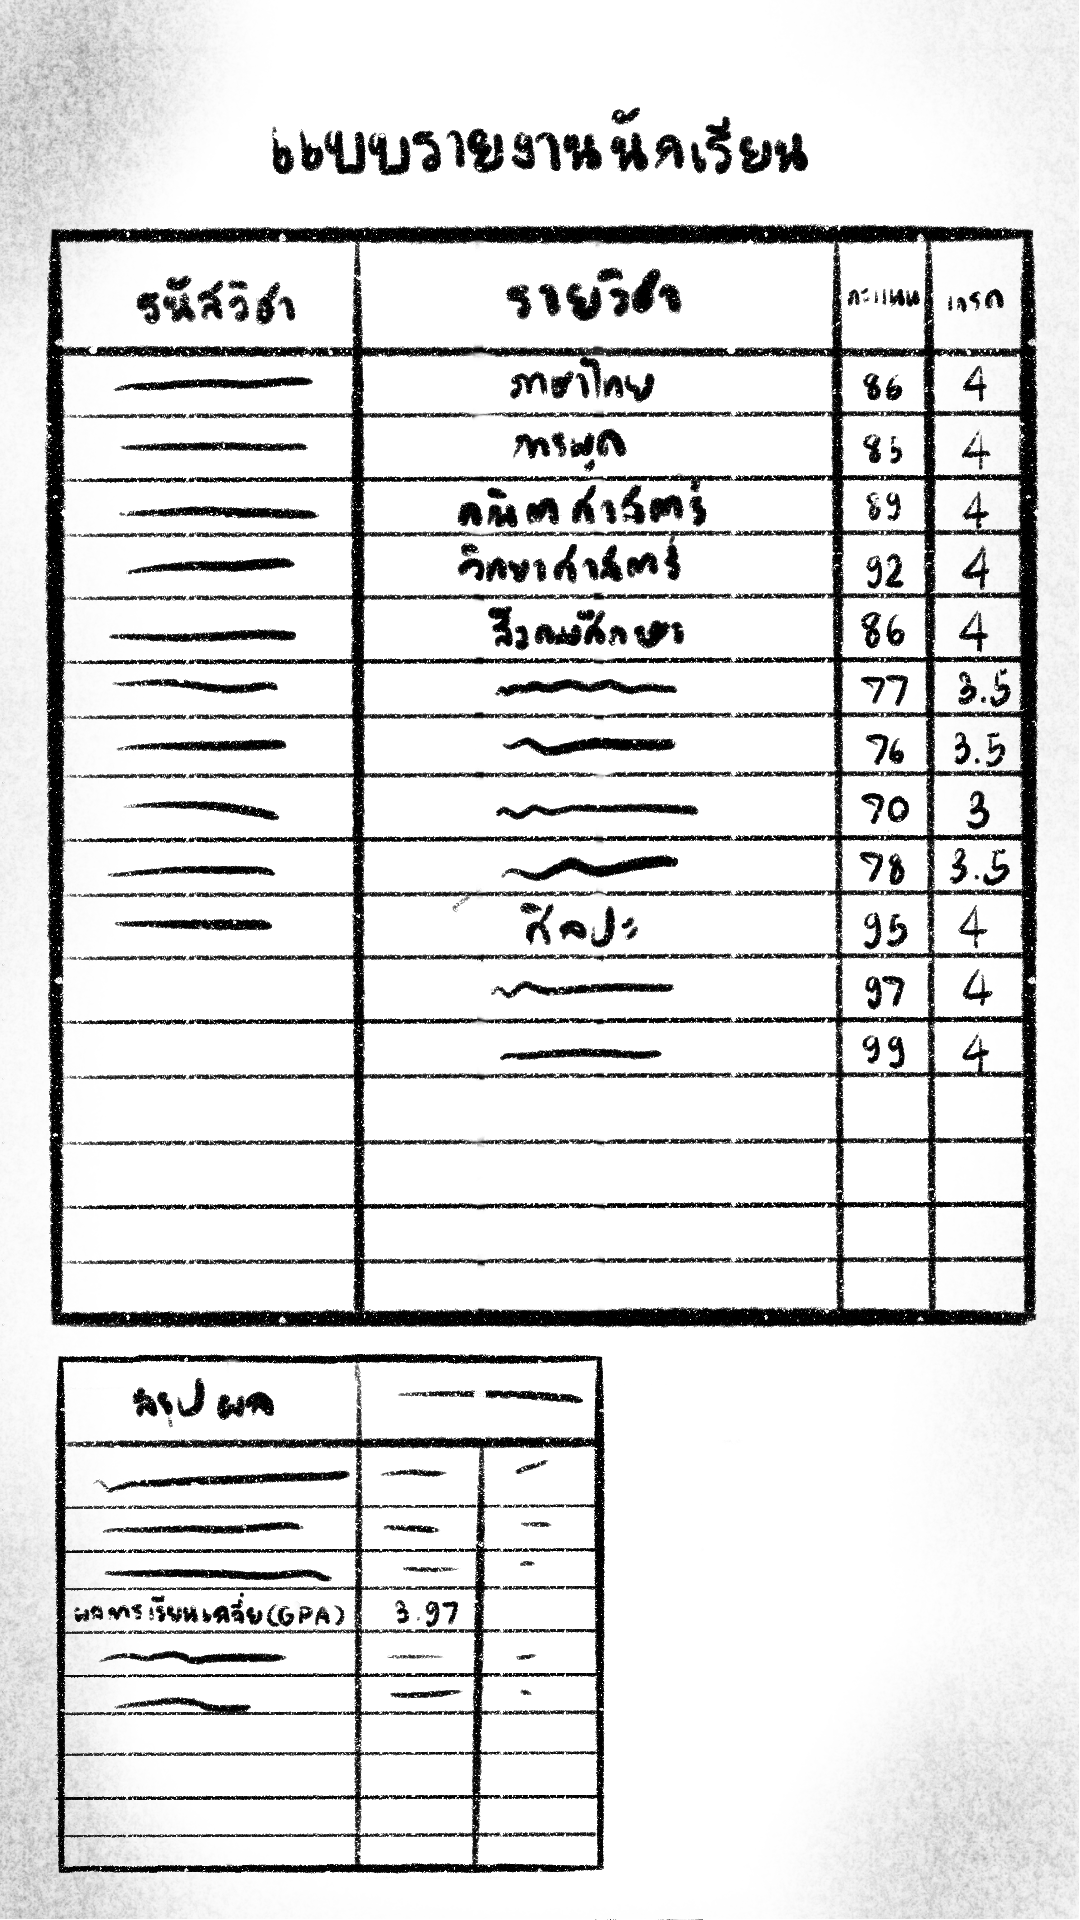 แบบรายงานนักเรียน
รหัสวิชา รายวิชา คะแนน เกรด
ภาษาไทย 86 4
การพูด 85 4
คณิตศาสตร์ 89 4
วิทยาศาสตร์ 92 4
สังคมศึกษา 86 4
77 3.5
76 3.5
70 3
78 3.5
ศิลปะ 95 4
97 4
99 4
สรุปผล
ผลการเรียนเฉลี่ย(GPA) 3.97